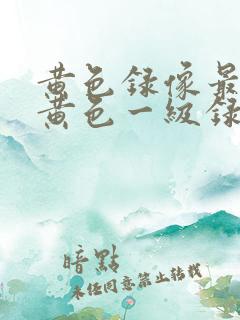 黄色録像最
黄色一級録
暗點
未经同意禁止转载